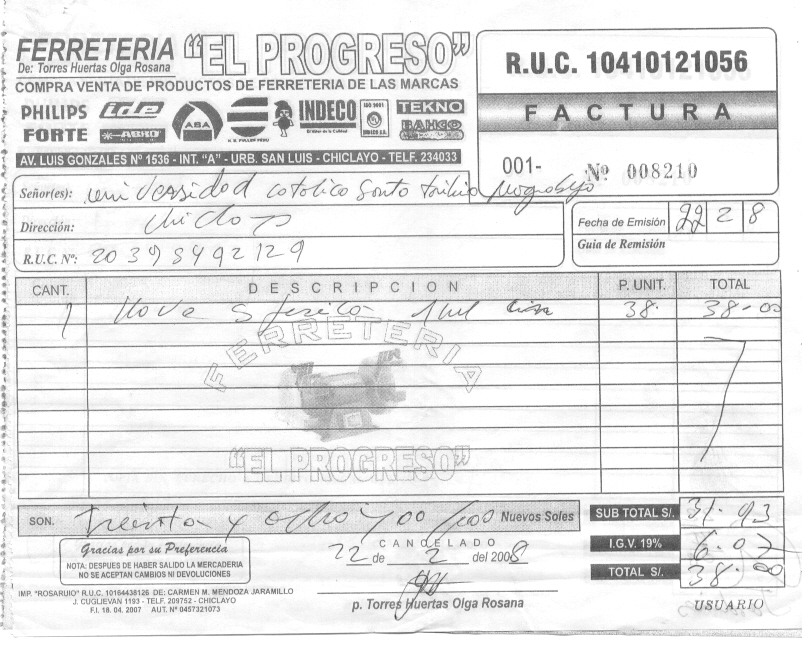 FERRETERIA "EL PROGRESO"
De: Torres Huertas Olga Rosana
COMPRA VENTA DE PRODUCTOS DE FERRETERIA DE LAS MARCAS
PHILIPS ABA INDECO TEKNO
FORTE ABRO H. B. FULLER PERU BAHCO
AV. LUIS GONZALES Nº 1536 - INT. "A" - URB. SAN LUIS - CHICLAYO - TELF. 234033
R.U.C. 10410121056
FACTURA
001- Nº 008210
Señor(es): universidad catolica Santo
Dirección: Chiclayo
R.U.C. Nº: 20395492129
Fecha de Emisión 22 2 8
Guia de Remisión
CANT. DESCRIPCION P. UNIT. TOTAL
1 38. 38-00
FERRETERIA
"EL PROGRESO"
SON. Treinta y ocho y 00/100 Nuevos Soles
SUB TOTAL S/. 31.93
I.G.V. 19% 6.07
TOTAL S/. 38.00
Gracias por su Preferencia
NOTA: DESPUES DE HABER SALIDO LA MERCADERIA
NO SE ACEPTAN CAMBIOS NI DEVOLUCIONES
CANCELADO
22 de 2 del 2008
p. Torres Huertas Olga Rosana
IMP. "ROSARUIO" R.U.C. 10164438126 DE: CARMEN M. MENDOZA JARAMILLO
J. CUGLIEVAN 1193 - TELF. 209752 - CHICLAYO
F.I. 18. 04. 2007 AUT. Nº 0457321073
USUARIO